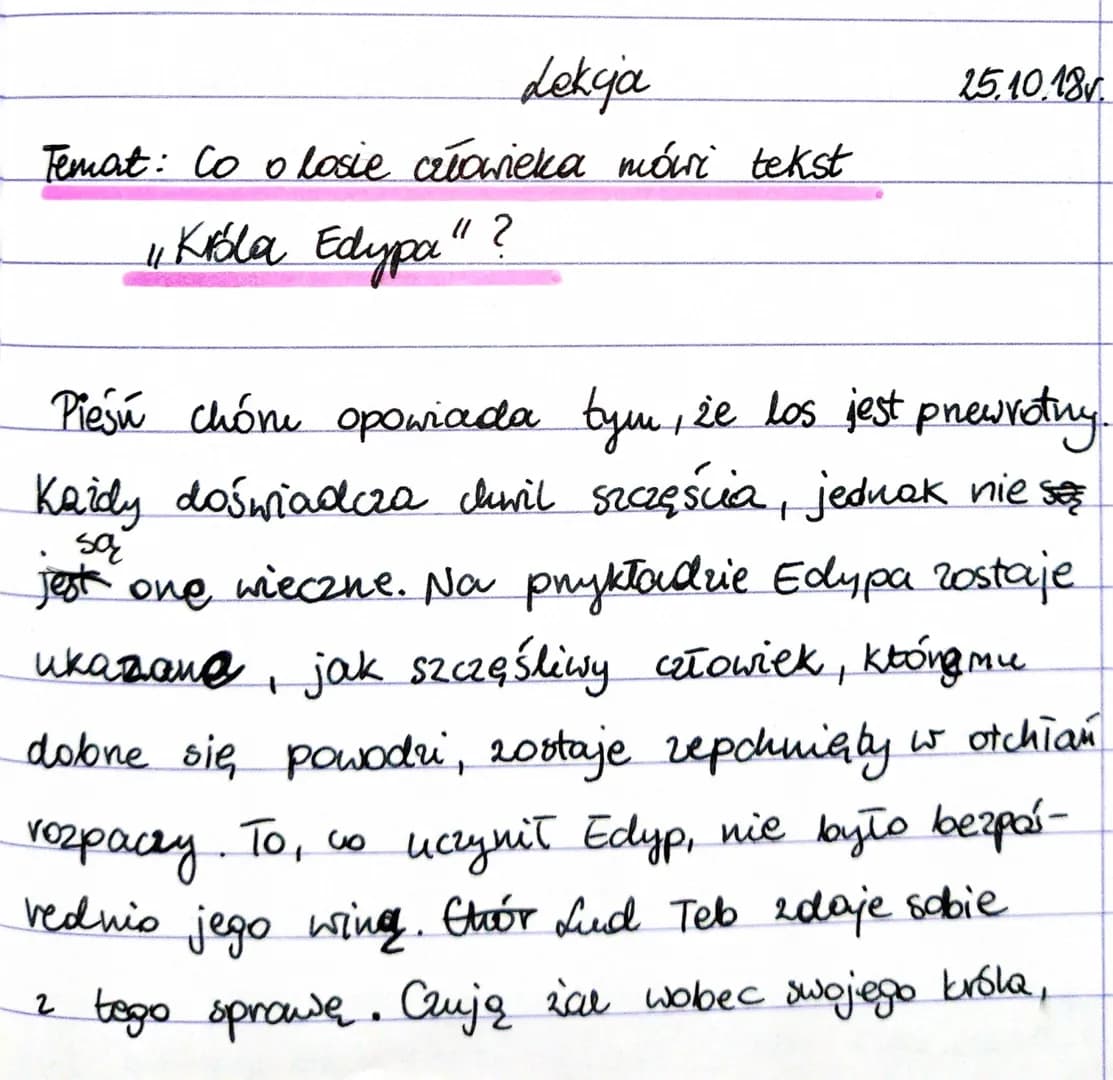 Lekcja 25.10.18r.
Temat: Co o losie człowieka mówi tekst
„Króla Edypa" ?
Pieśń chóru opowiada tym, że los jest przewrotny.
Każdy doświadcza chwil szczęścia, jednak nie są
są
jest one wieczne. Na przykładzie Edypa zostaje
ukazane, jak szczęśliwy człowiek, któremu
dobrze się powodzi, zostaje zepchnięty w otchłań
rozpaczy. To, co uczynił Edyp, nie było bezpoś-
rednio jego winą. Chór Lud Teb zdaje sobie
z tego sprawę. Czują żal wobec swojego króla,